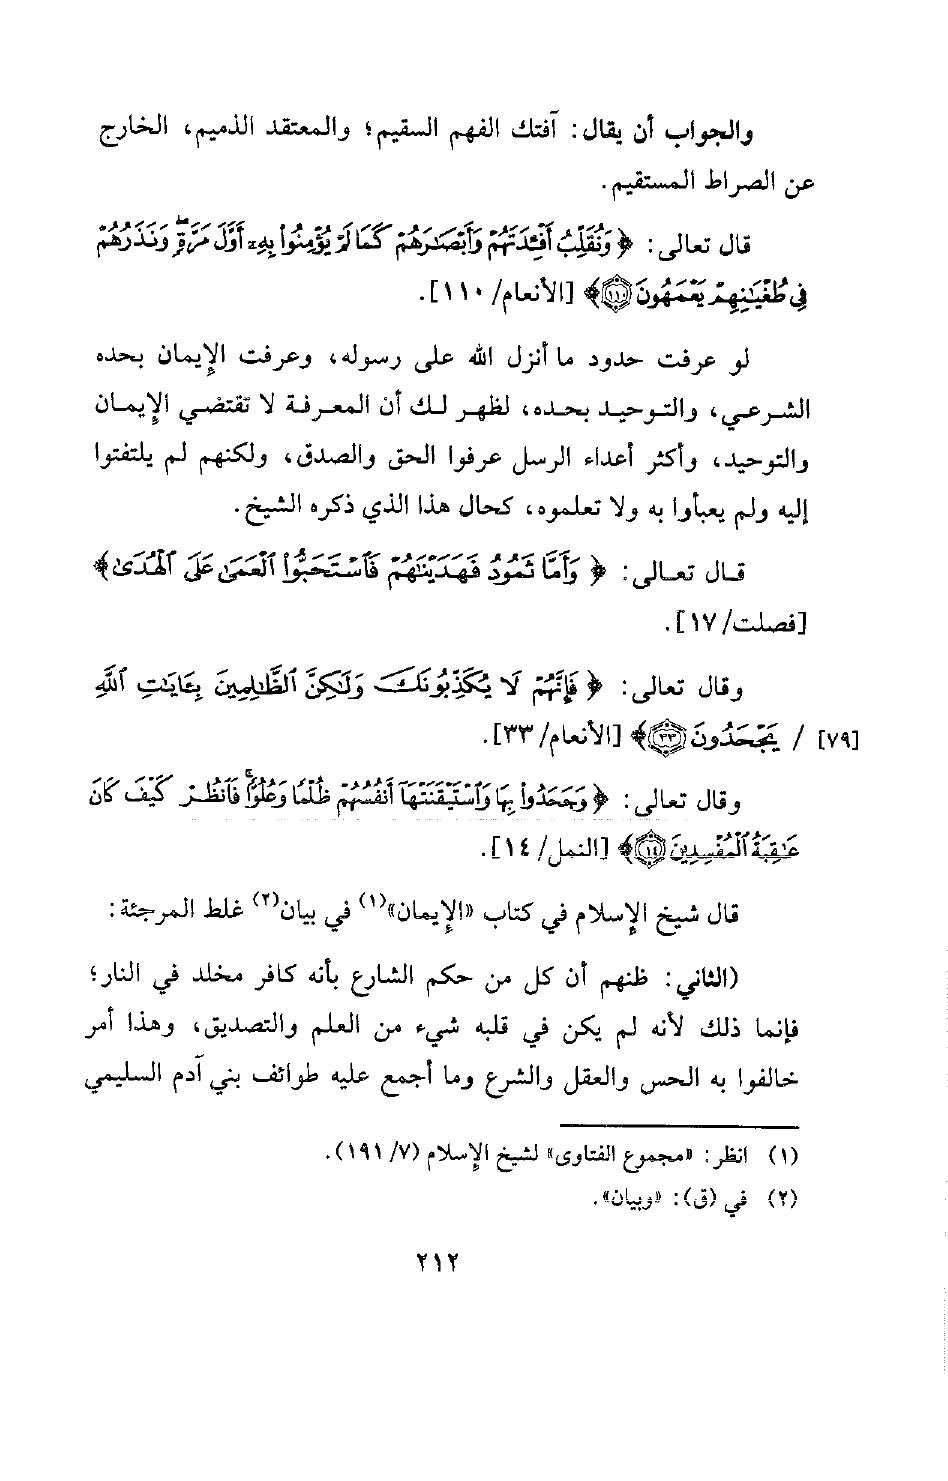 والجواب أن يقال: آفتك الفهم السقيم؛ والمعتقد الذميم، الخارج
عن الصراط المستقيم.
قال تعالى: ﴿ وَنُقَلِّبُ أَفْـِٔدَتَهُمْ وَأَبْصَـٰرَهُمْ كَمَا لَمْ يُؤْمِنُوا۟ بِهِۦٓ أَوَّلَ مَرَّةٍ وَنَذَرُهُمْ
فِى طُغْيَـٰنِهِمْ يَعْمَهُونَ ١١٠﴾ [الأنعام/ ١١٠].
لو عرفت حدود ما أنزل الله على رسوله، وعرفت الإيمان بحده
الشرعي، والتوحيد بحده، لظهر لك أن المعرفة لا تقتضي الإيمان
والتوحيد، وأكثر أعداء الرسل عرفوا الحق والصدق، ولكنهم لم يلتفتوا
إليه ولم يعبأوا به ولا تعلموه، كحال هذا الذي ذكره الشيخ.
قال تعالى: ﴿ وَأَمَّا ثَمُودُ فَهَدَيْنَـٰهُمْ فَٱسْتَحَبُّوا۟ ٱلْعَمَىٰ عَلَى ٱلْهُدَىٰ﴾
[فصلت/ ١٧].
وقال تعالى: ﴿ فَإِنَّهُمْ لَا يُكَذِّبُونَكَ وَلَـٰكِنَّ ٱلظَّـٰلِمِينَ بِـَٔايَـٰتِ ٱللَّهِ
[٧٩] / يَجْحَدُونَ ٣٣﴾ [الأنعام/ ٣٣].
وقال تعالى: ﴿ وَجَحَدُوا۟ بِهَا وَٱسْتَيْقَنَتْهَآ أَنفُسُهُمْ ظُلْمًا وَعُلُوًّا ۚ فَٱنظُرْ كَيْفَ كَانَ
عَـٰقِبَةُ ٱلْمُفْسِدِينَ ١٤﴾ [النمل/ ١٤].
قال شيخ الإسلام في كتاب «الإيمان»(١) في بيان(٢) غلط المرجئة:
(الثاني: ظنهم أن كل من حكم الشارع بأنه كافر مخلد في النار؛
فإنما ذلك لأنه لم يكن في قلبه شيء من العلم والتصديق، وهذا أمر
خالفوا به الحس والعقل والشرع وما أجمع عليه طوائف بني آدم السليمي
(١) انظر: «مجموع الفتاوى» لشيخ الإسلام (٧/ ١٩١).
(٢) في (ق): «وبيان».
٢١٢